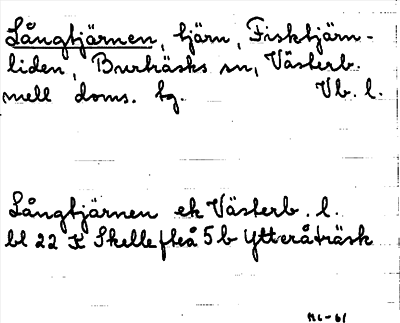 Långtjärnen, tjärn, Fisktjärn-
liden, Burträsks sn, Västerb.
mell doms. tg. Vb. l.
Långtjärnen ek Västerb. l.
bl 22 K Skellefteå 5b Ytteråträsk